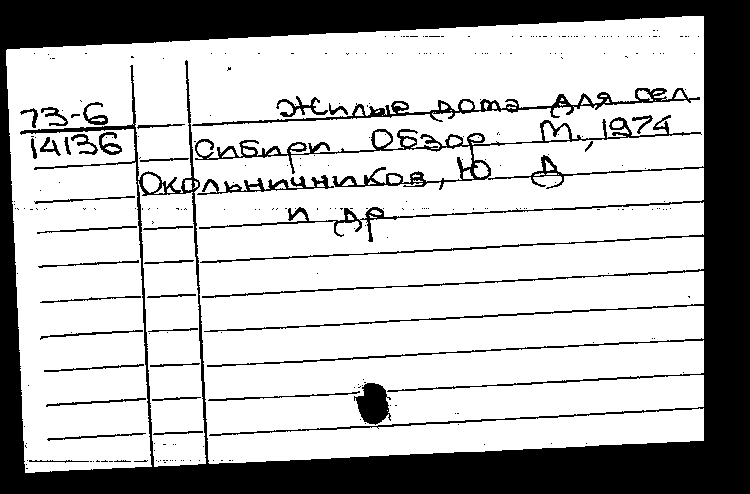 73-6
14136
Жилые дома для сел
Сибири. Обзор. М., 1974
Окольничников, Ю Д
и др.